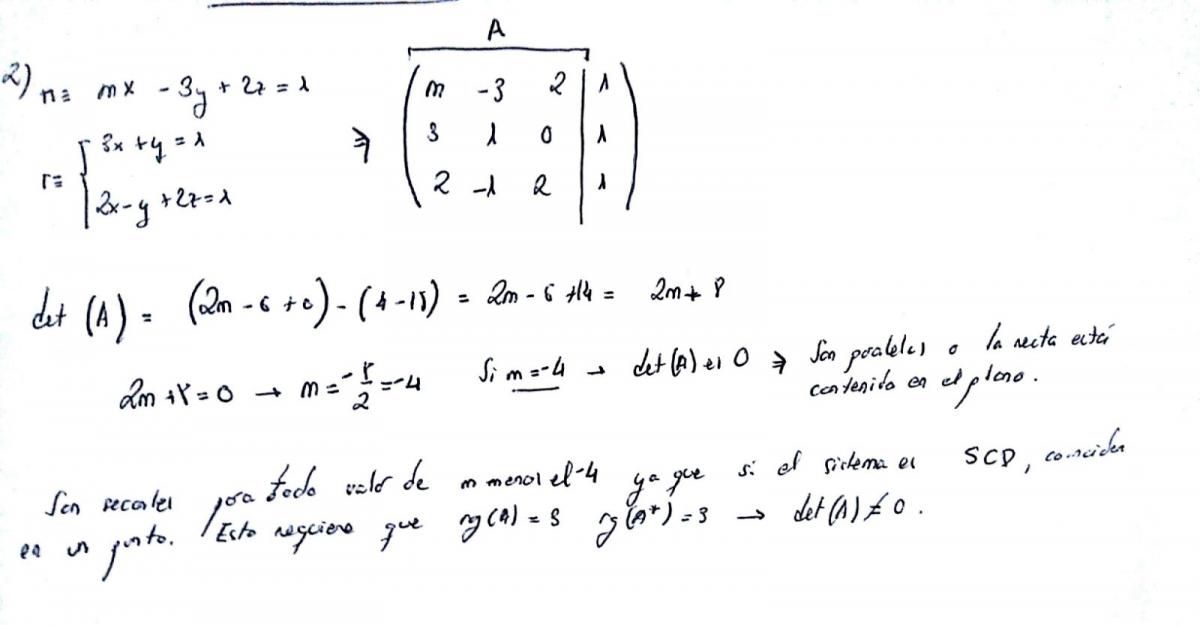 A
2) π≡ mx - 3y + 2z = 1
r≡ { 3x + y = 1
2x - y + 2z = 1
⇒ ( m -3 2 | 1
3 1 0 | 1
2 -1 2 | 1 )
det (A) = (2m - 6 + 0) - (4 - 18) = 2m - 6 + 14 = 2m + 8
2m + 8 = 0 → m = -8/2 = -4 Si m = -4 → det(A) es 0 ⇒ Son paralelas o la recta está
contenida en el plano.
Son secantes para todo valor de m menos el -4 ya que si el sistema es SCD, coinciden
en un punto. Esto requiere que rg(A) = 3 rg(A*) = 3 → det(A) ≠ 0.